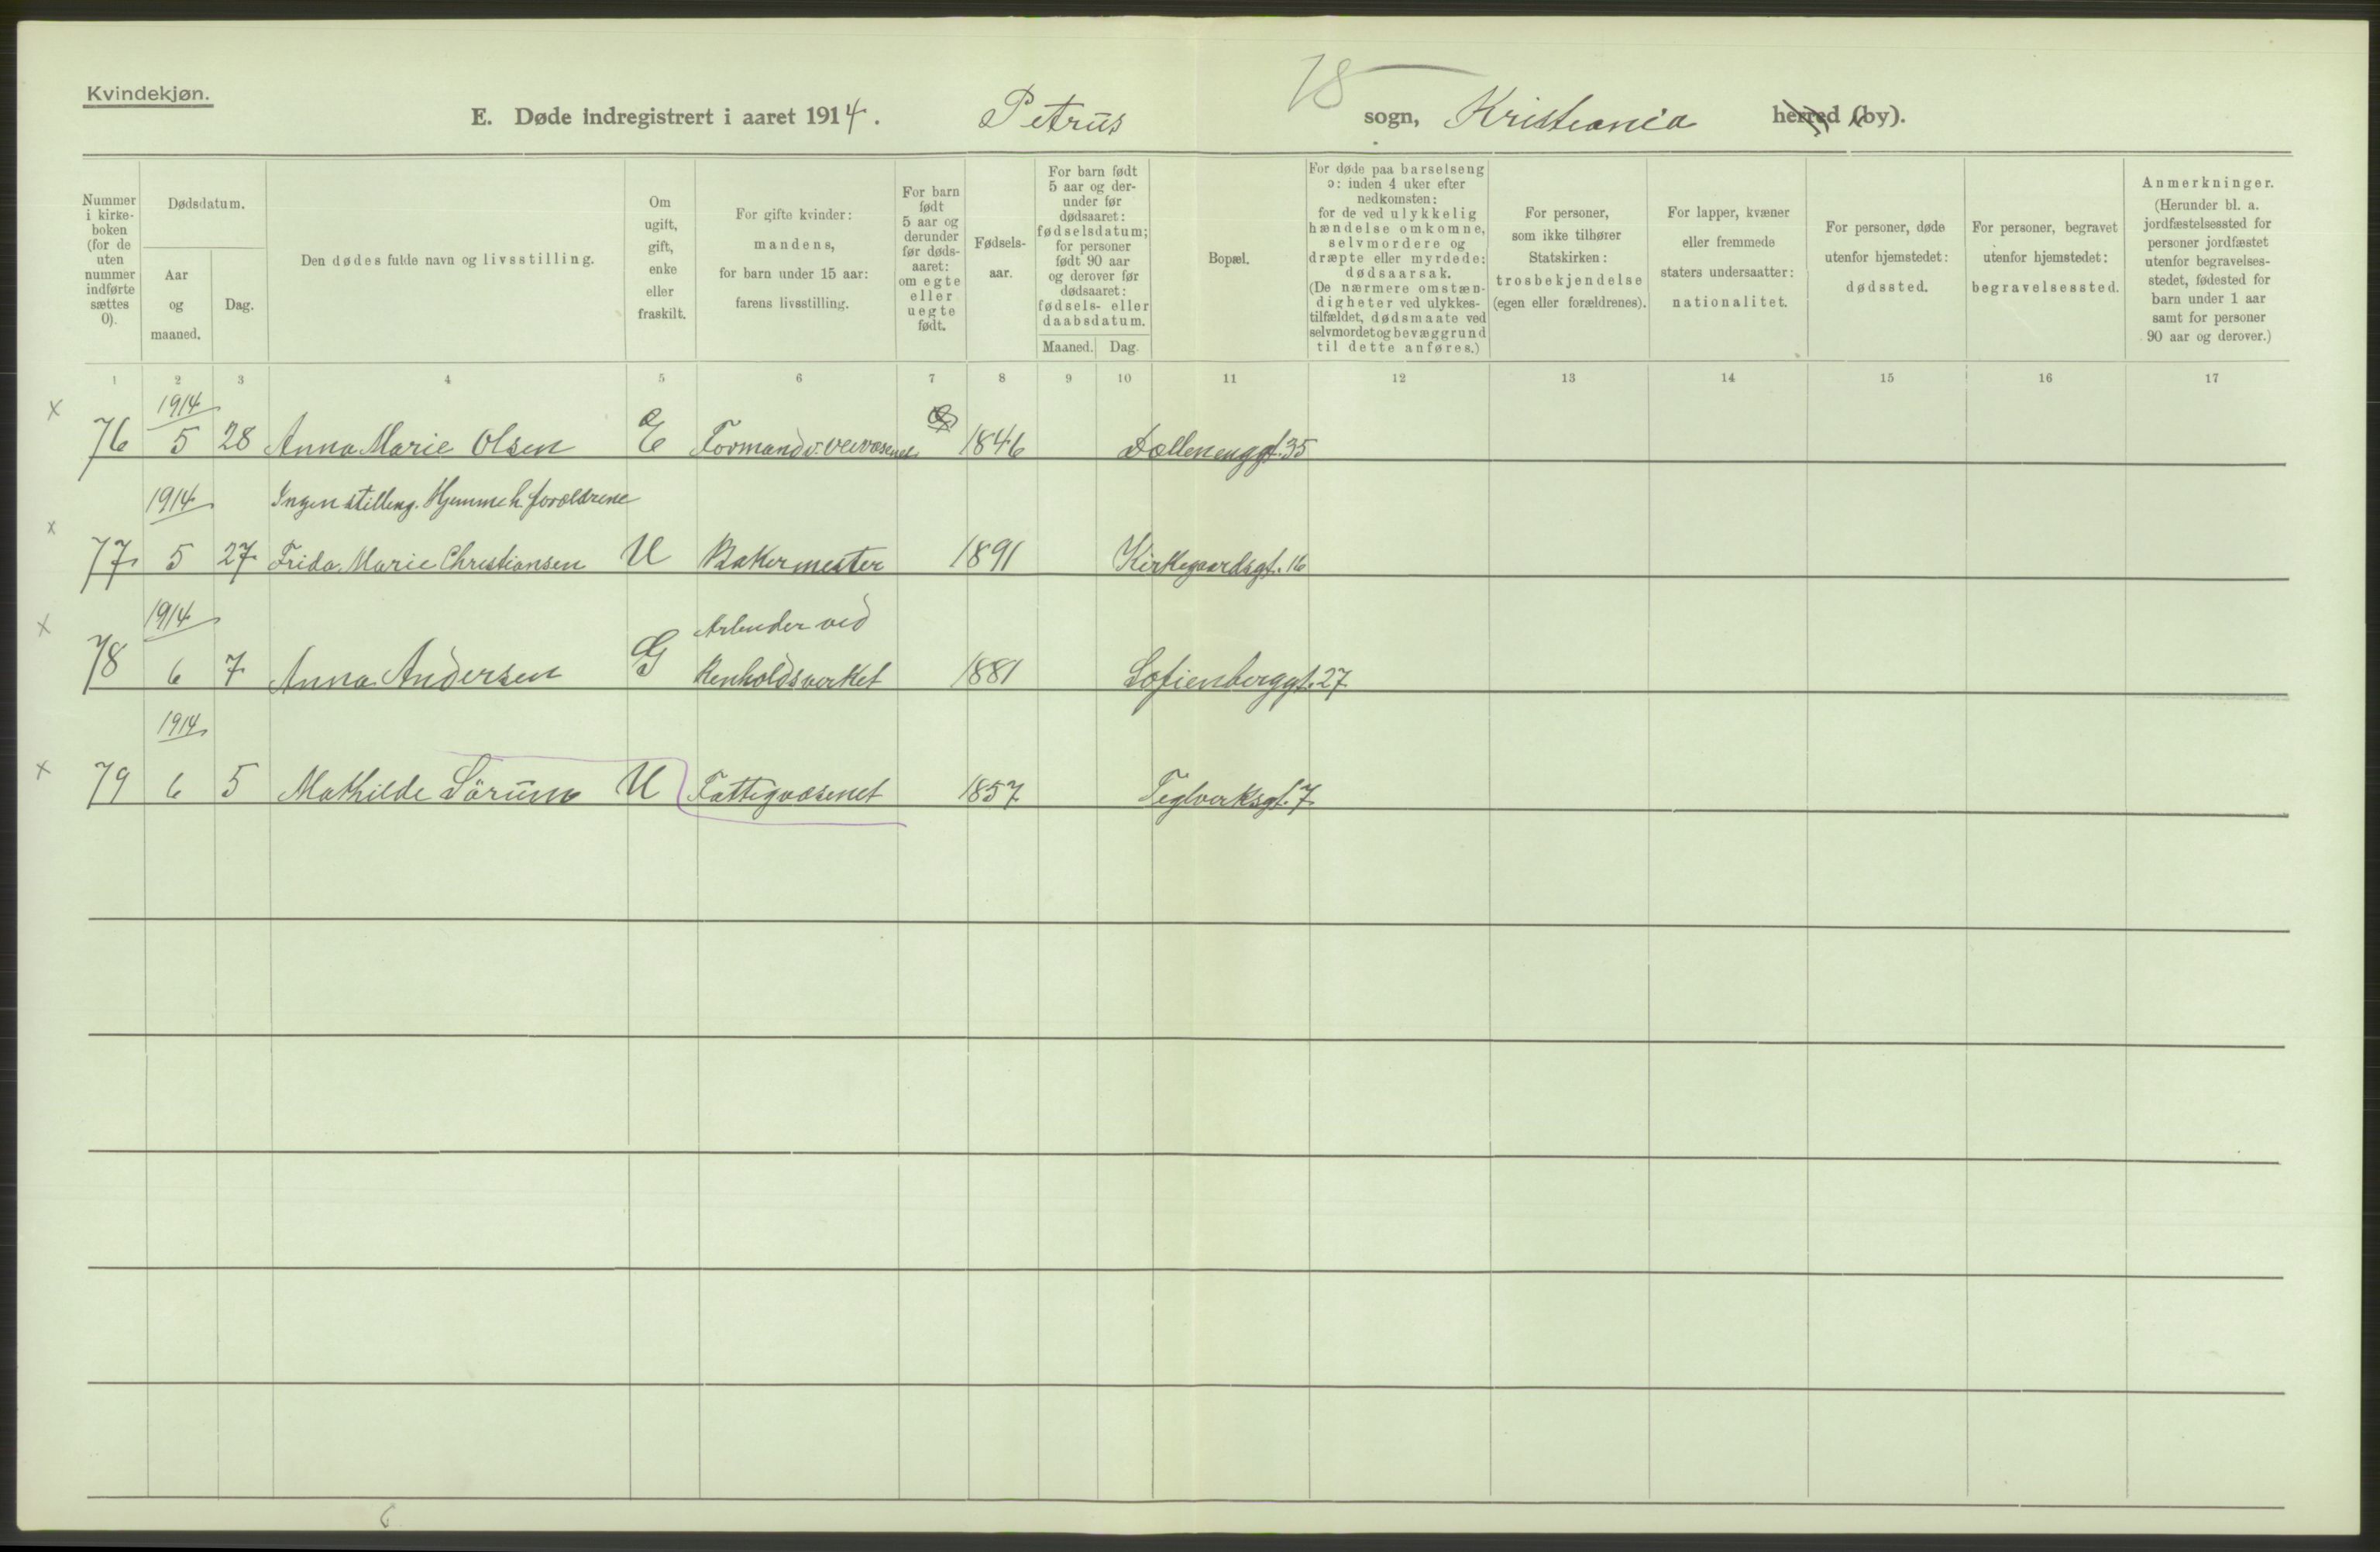 Kvindekjøn.
78
E. Døde indregistrert i aaret 1914. Petrus sogn, Kristiania herred (by).
Nummer i kirke-boken (for de uten nummer indførte sættes 0).
Dødsdatum.
Aar og maaned.
Dag.
Den dødes fulde navn og livsstilling.
Om ugift, gift, enke eller fraskilt.
For gifte kvinder: mandens, for barn under 15 aar: farens livsstilling.
For barn født 5 aar og derunder før døds-aaret: om egte eller uegte født.
Fødsels-aar.
For barn født 5 aar og der-under før dødsaaret: fødselsdatum; for personer født 90 aar og derover før dødsaaret: fødsels- eller daabsdatum.
Maaned. Dag.
Bopæl.
For døde paa barselseng ɔ: inden 4 uker efter nedkomsten: for de ved ulykkelig hændelse omkomne, selvmordere og dræpte eller myrdede: dødsaarsak. (De nærmere omstæn-digheter ved ulykkes-tilfældet, dødsmaate ved selvmordet og bevæggrund til dette anføres.)
For personer, som ikke tilhører Statskirken: trosbekjendelse (egen eller forældrenes).
For lapper, kvæner eller fremmede staters undersaatter: nationalitet.
For personer, døde utenfor hjemstedet: dødssted.
For personer, begravet utenfor hjemstedet: begravelsessted.
Anmerkninger. (Herunder bl. a. jordfæstelsessted for personer jordfæstet utenfor begravelses-stedet, fødested for barn under 1 aar samt for personer 90 aar og derover.)
1 2 3 4 5 6 7 8 9 10 11 12 13 14 15 16 17
1914
x 76 5 28 Anna Marie Olsen E Formand v. veivæsenet 1846 Dællenenggt. 35
1914 Ingen stilling. Hjemme h. forældrene
x 77 5 27 Frida Marie Christiansen U Bakermester 1891 Kirkegaardsgt. 16
1914 Arbeider ved
x 78 6 7 Anna Andersen G Renholdsverket 1881 Sofienberggt. 27
1914
x 79 6 5 Mathilde Sörum U Fattigvæsenet 1857 Teglverksgt. 7
6